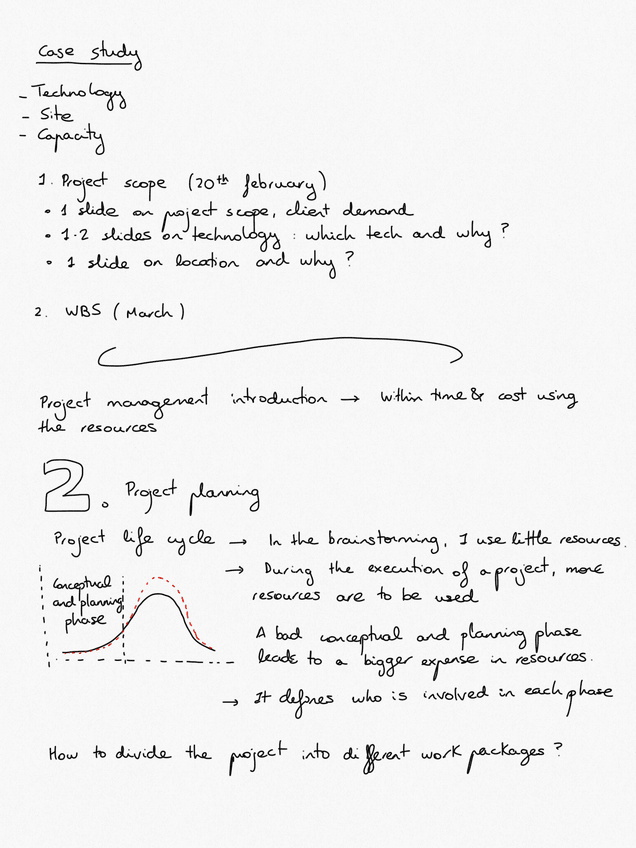 Case study
- Technology
- Site
- Capacity
1. Project scope (20th february)
• 1 slide on project scope, client demand
• 1-2 slides on technology : which tech and why ?
• 1 slide on location and why ?
2. WBS (March)
Project management introduction → Within time & cost using
the resources
2. Project planning
Project life cycle → In the brainstorming, I use little resources.
→ During the execution of a project, more
resources are to be used
Conceptual
and planning
phase
A bad conceptual and planning phase
leads to a bigger expense in resources.
→ It defines who is involved in each phase
How to divide the project into different work packages ?